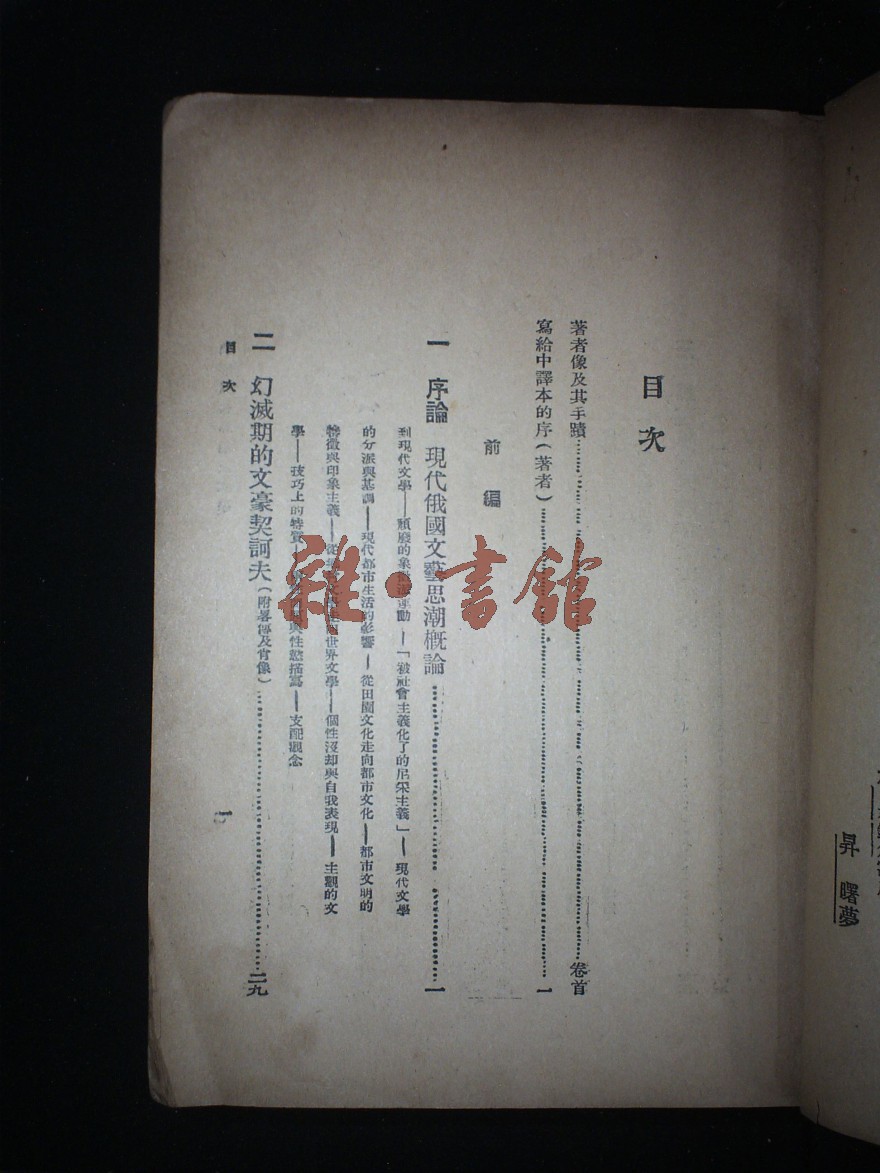 昇曙夢
目次
著者像及其手蹟……卷首
寫給中譯本的序（著者）……一
前編
一 序論 現代俄國文藝思潮概論……一
到現代文學——頹廢的象徵運動——「被社會主義化了的尼采主義」——現代文學
的分派與基調——現代都市生活的影響——從田園文化走向都市文化——都市文明的
特徵與印象主義——從 世界文學——個性沒却與自我表現——主觀的文
學——技巧上的特質—— 與性慾描寫——支配觀念
二 幻滅期的文豪契訶夫（附畧傳及肖像）……二九
目次
一
雜·書館